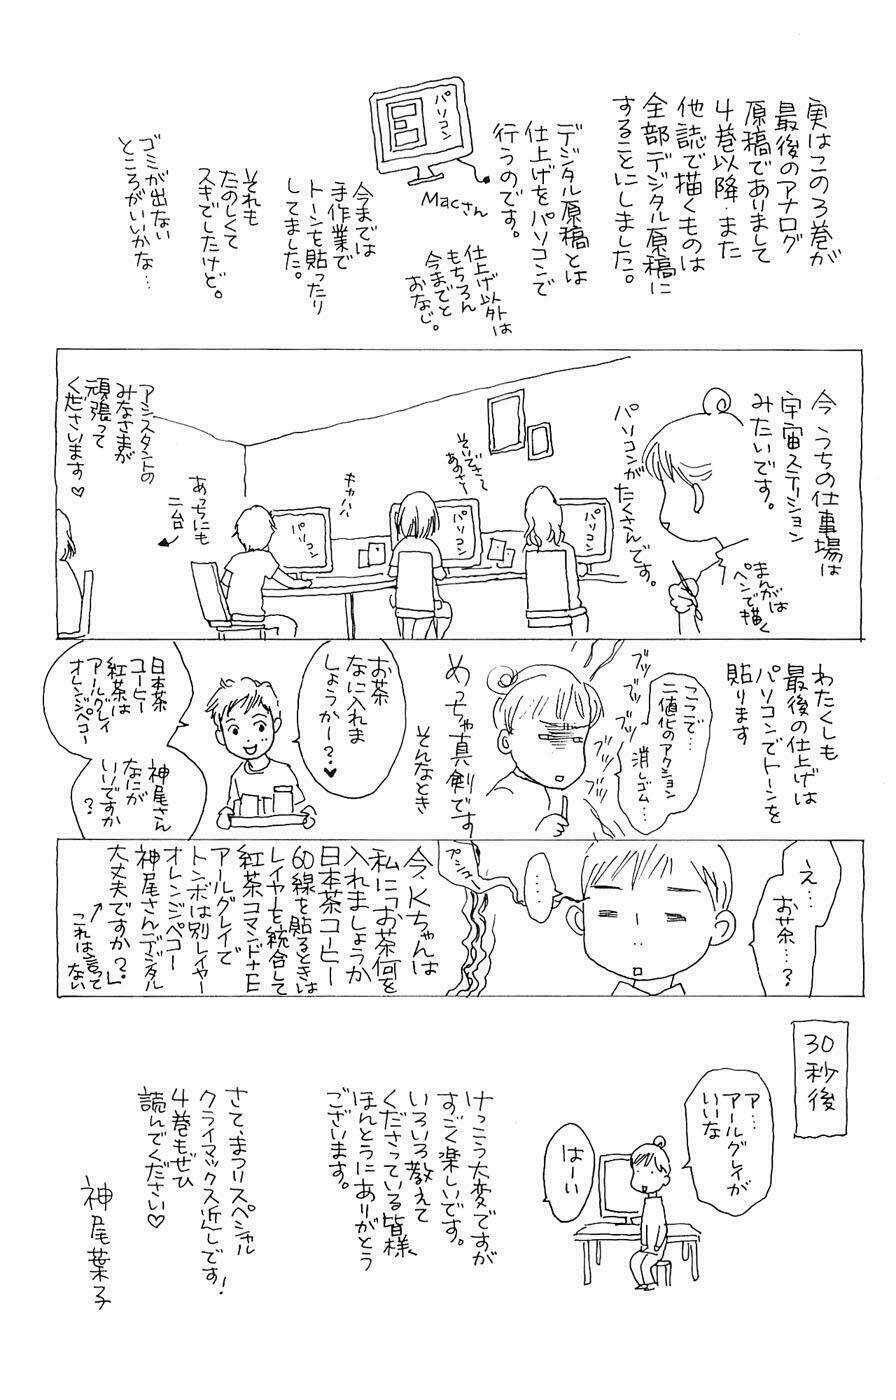 実はこの3巻が
最後のアナログ
原稿でありまして
4巻以降、また
他誌で描くものは
全部デジタル原稿に
することにしました。
デジタル原稿とは
仕上げをパソコンで
行うのです。
パソコン
Macさん
仕上げ以外は
もちろん
今までと
おなじ。
今までは
手作業で
トーンを貼ったり
してました。
それも
たのしくて
スキでしたけど。
ゴミが出ない
ところがいいかな…
今うちの仕事場は
宇宙ステーション
みたいです。
パソコンが
たくさんです。
まんがは
ペンで描く
そいでさー
あのさー
パソコン
キャハハ
パソコン
パソコン
あっちにも
二台
アシスタントの
みなさまが
頑張って
くださいます♡
わたくしも
最後の仕上げは
パソコンでトーンを
貼ります
ブツブツ
ブツブツ
ここで…
二値化のアクション
消しゴム…
めっちゃ真剣です
そんなとき
お茶
なに入れま
しょうかー?♥
日本茶
コーヒー
紅茶は
アールグレイ
オレンジペコー
神尾さん
なにが
いいですか
?
え…
お茶…?
……
プシュー
今、Kちゃんは
私に「お茶何を
入れましょうか
日本茶コーヒー
60線を貼るときは
レイヤーを統合して
紅茶コマンド+E
アールグレイで
トンボは別レイヤー
オレンジペコー
神尾さんデジタル
大丈夫ですか?」
これは言って
ない
30秒後
ア…
アールグレイが
いいな
はーい
けっこう大変ですが
すごく楽しいです。
いろいろ教えて
くださっている皆様、
ほんとうにありがとう
ございます。
さて、まつりスペシャル
クライマックス近しです!
4巻もぜひ
読んでください♡
神尾葉子